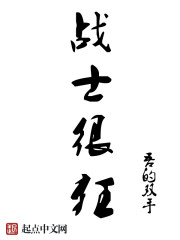 战士很狂
吾的双手
起点中文网